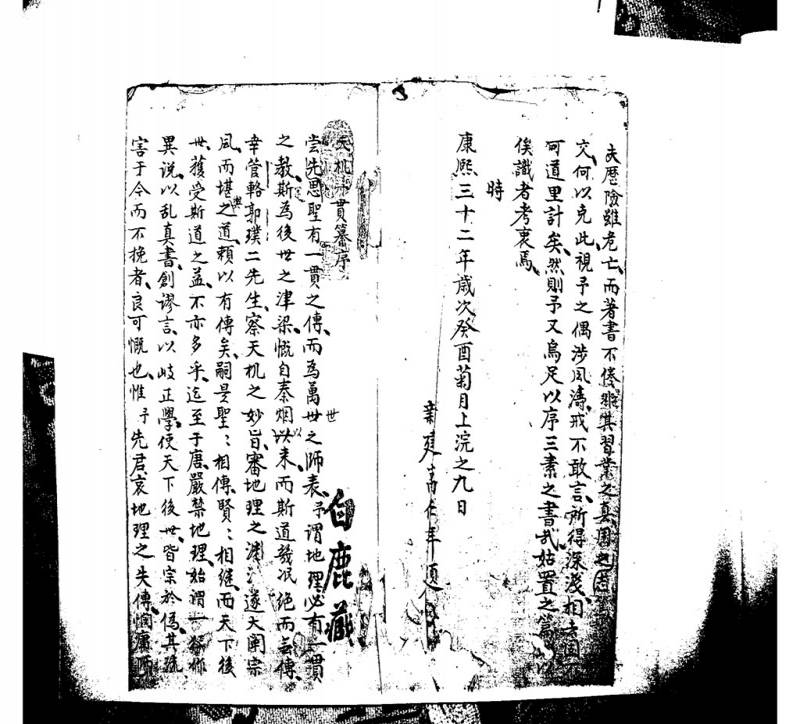 夫歷險雖危亡、而著書不倦、非其習業之真、固
交、何以克此、視予之偶涉風濤、戒不敢言、所得深淺、相去固
可道里計矣、然則予又烏足以序三素之書哉、姑置之篇以
俟識者考衷焉、
時
康熙三十二年歲次癸酉菊月上浣之九日
新建
白鹿藏
天机一貫纂序
嘗先思聖有一貫之傳、而為萬世之師表、予謂地理必有一貫
世
之教、斯為後世之津梁、慨自秦烟以來、而斯道幾泯絕而無傳、
以
幸管輅郭璞二先生、察天机之妙旨、審地理之淵 遂大闡宗
風、而堪之道、賴以有傳矣、嗣是聖:相傳、賢:相繼、而天下後
輿
世、獲受斯道之益、不亦多乎、迄至于唐、嚴禁地理、始謂一行作
異說、以乱真書、創謬言、以岐正學、使天下後世、皆宗於偽、其流
害于今而不挽者、良可慨也、惟予先君哀地理之失傳、憫庸師